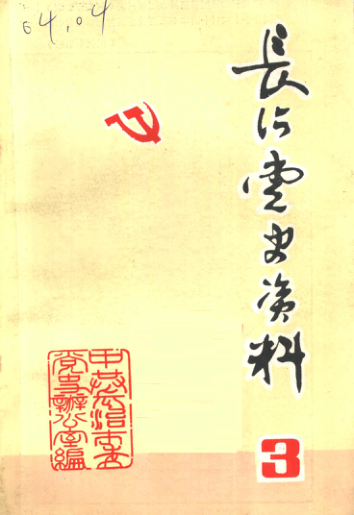 64.04
長治党史资料
中共长治市委
党史辦公室編
3